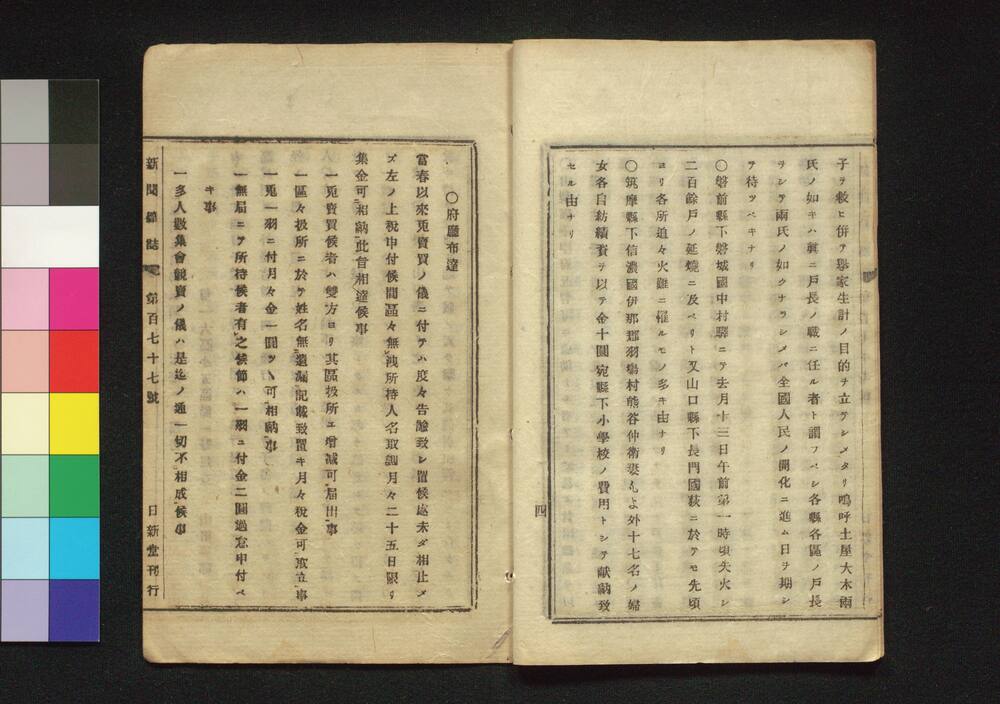 子ヲ救ヒ併テ擧家生計ノ目的ヲ立テシメタリ嗚呼土屋大木兩
氏ノ如キハ眞ニ戸長ノ職ニ任ル者ト謂フベシ各縣各區ノ戸長
ヲシテ兩氏ノ如クナラシメバ全國人民ノ開化ニ進ム日ヲ期シ
テ待ツベキナリ
〇磐前縣下磐城國中村驛ニテ去月十三日午前第一時頃失火シ
二百餘戸ノ延燒ニ及ベリト又山口縣下長門國萩ニ於テモ先頃
ヨリ各所追々火難ニ罹ルモノ多キ由ナリ
〇筑摩縣下信濃國伊那郡羽塲村熊谷仲衛妻ちよ外十七名ノ婦
女各自紡績賣ヲ以テ金十圓宛縣下小學校ノ費用トシテ献納致
セル由ナリ
四
〇府廳布達
當春以來兎賣買ノ儀ニ付テハ度々告諭致シ置候處未ダ相止メ
ズ左ノ上税申付候間區々無洩所持人名取調月々二十五日限リ
集金可相納此旨相達候事
一兎賣買候者ハ雙方ヨリ其區扱所エ増減可届出事
一區々扱所ニ於テ姓名無遺漏記載致置キ月々税金可取立事
一兎一羽ニ付月々金一圓ツヽ可相納事
一無届ニテ所持候者有之候節ハ一羽ニ付金二圓過怠申付ベ
キ事
一多人數集會競賣ノ儀ハ是迄ノ通一切不相成候事
新聞雜誌 第百七十七號 日新堂刊行